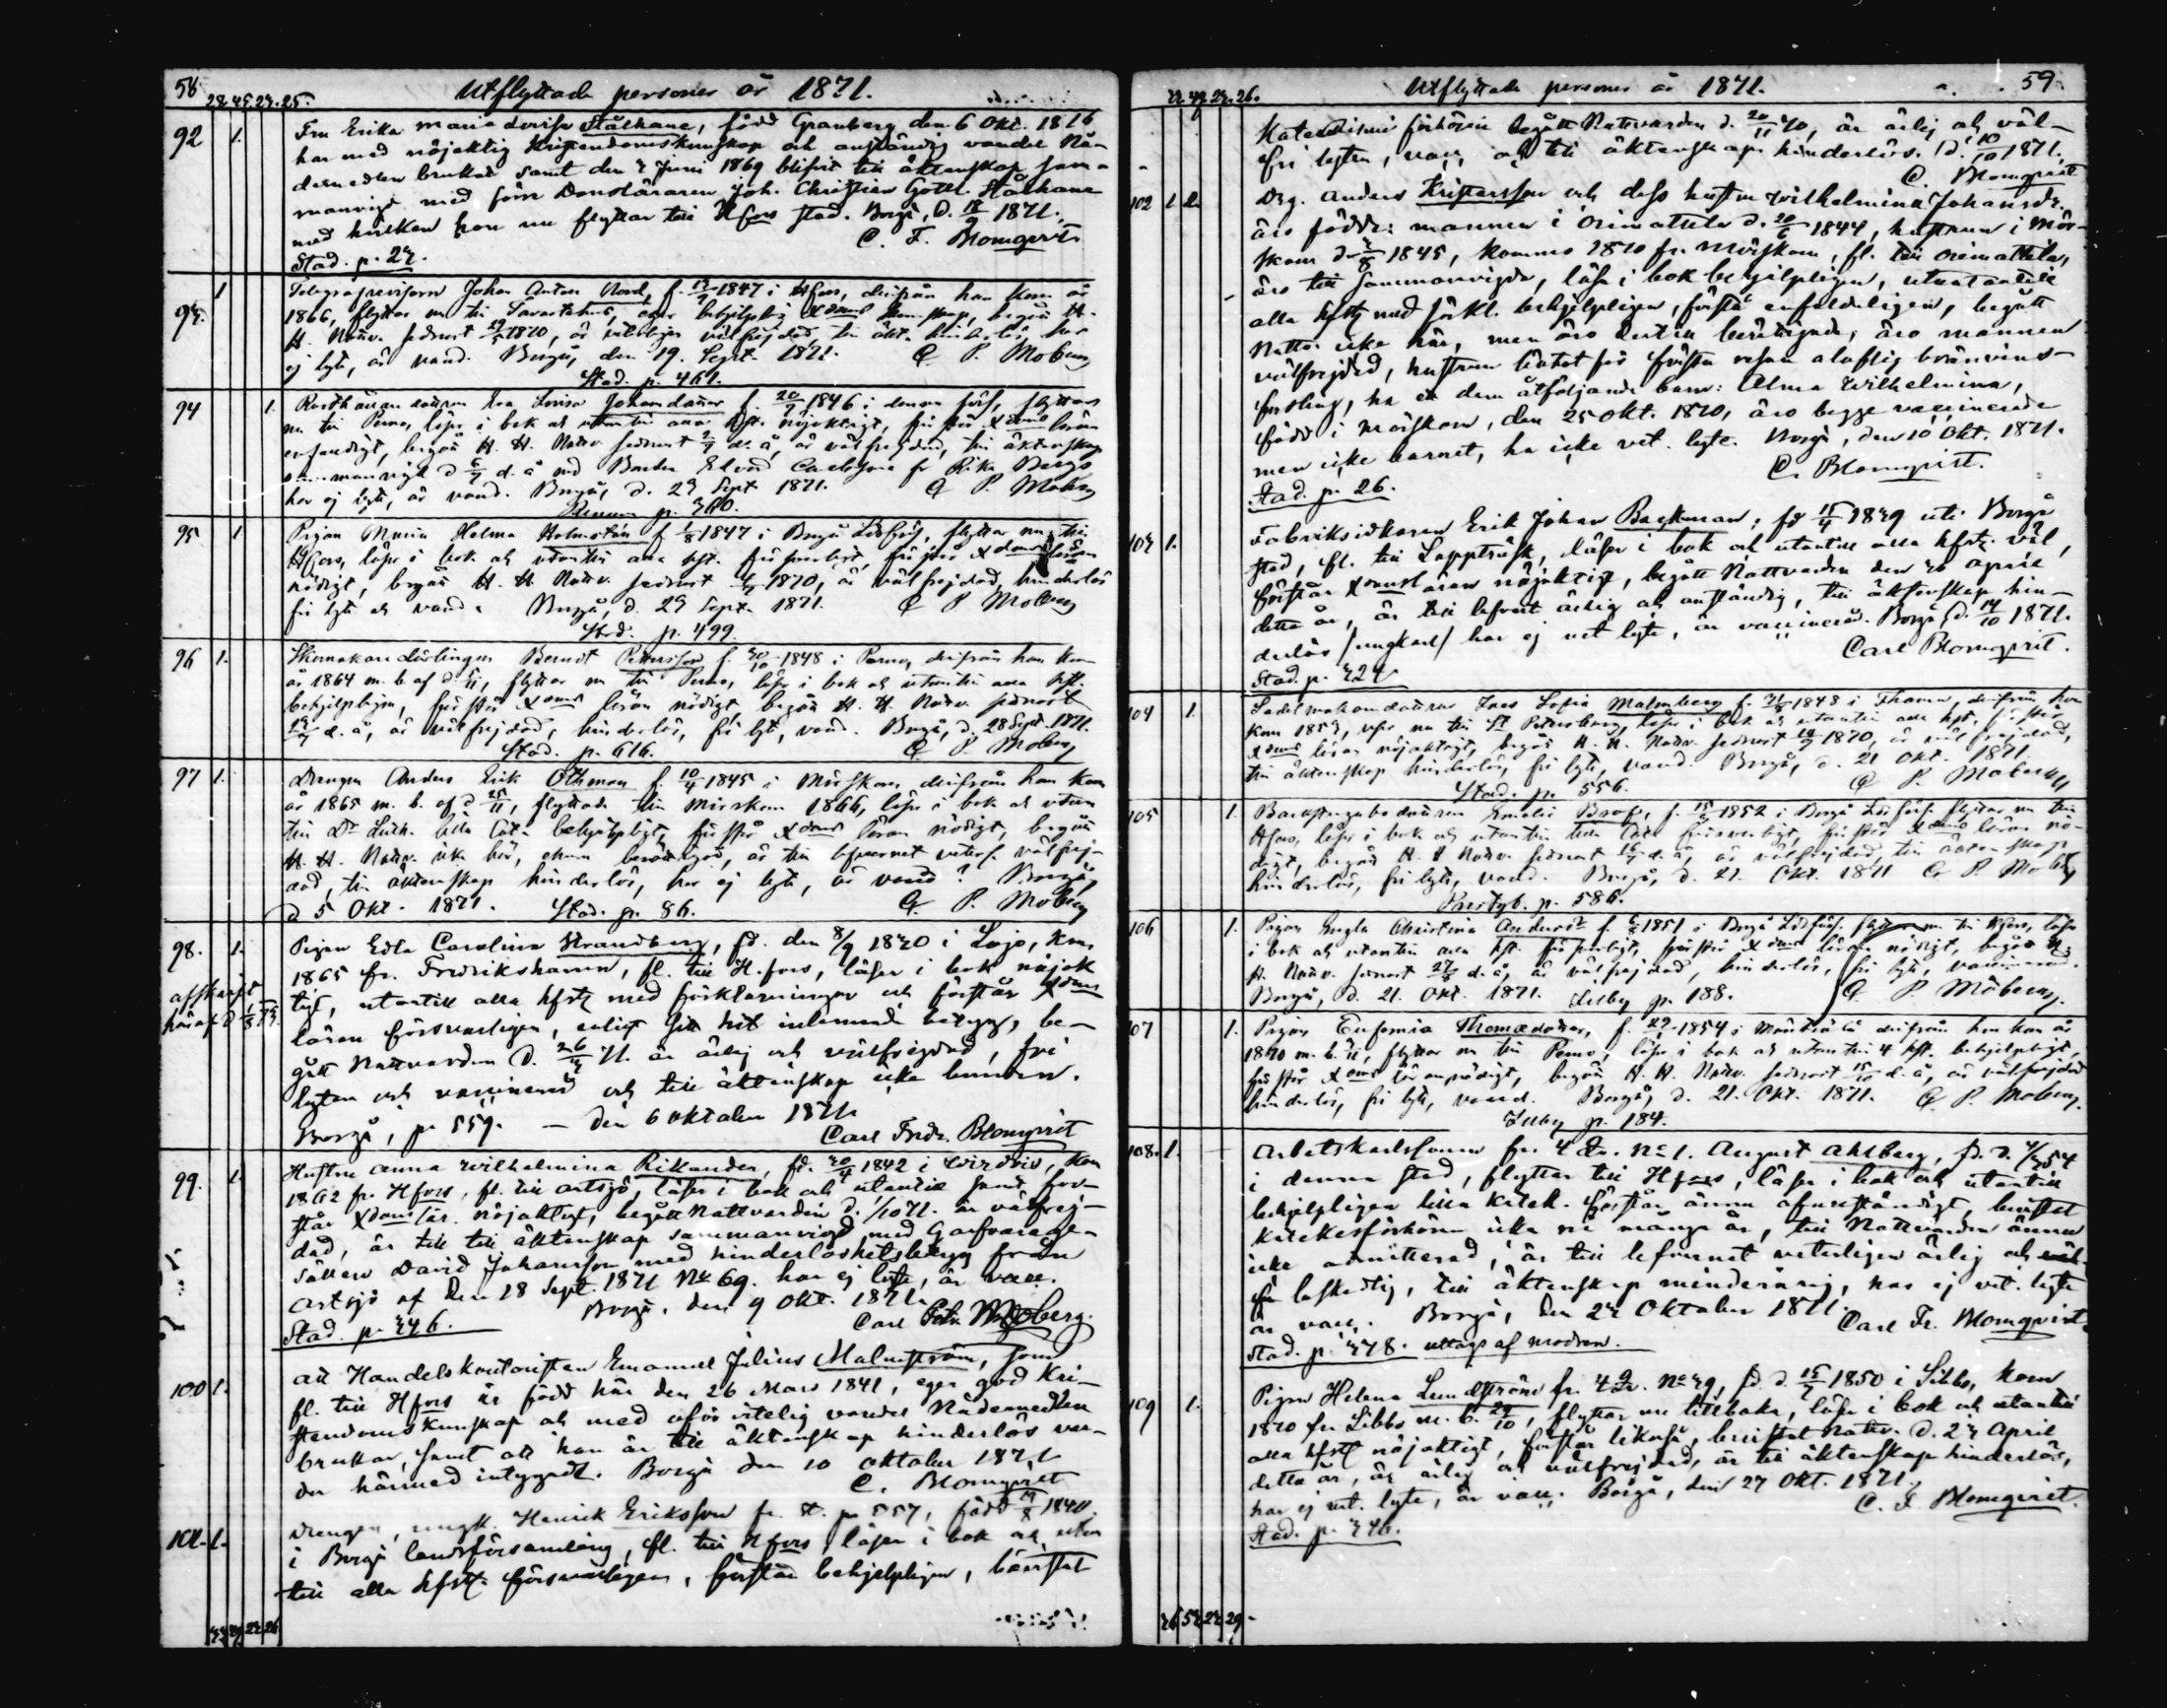 58 Utflyttade personer år 1871.
28. 45. 23. 25.
92 1. Fru Erika Maria Lovisa Stålhane, född Granberg den 6 Okt. 1826
har med nöjaktig Kristendomskunskap och anständig vandel Nå-
demedlen brukat samt den 3 Juni 1869 blifvit till äktenskap sam-
manvigd med förre Domsläraren Joh. Christian Gottl. Stålhane
med hvilken hon nu flyttar till Hfors stad. Borgå, d. 18/9 1871.
Stad. p. 23. C. F. Blomqvist
93. 1 Telegrafrevisorn Johan Anton Nord, f. 1847 i Hfors, derifrån han kom år
1866, flyttar nu till Tavastehus, eger behjelplig Xdoms kunskap, begick H.
H. Nattv. sednast 1870, är välfrejdad, till äkt. hinderlös, har
ej lyte, är vacc. Borgå, den 19. Sept. 1871. C. P. Moberg
Stad. p. 461.
94 1. Eva Lovisa Johansdotter f. 20/7 1846 i denna förs. flyttar
nu till Perno, läser i bok och utantill alla hfst. nöjaktigt, förstår Xdoms läran
begått H. H. Nattv. sednast d. å, är välfrejdad, till äktenskap
sammanvigd d. d. å med Edvard Carlsson
har ej lyte, är vacc. Borgå, d. 23 Sept 1871. C. P. Moberg
p. 360.
95 1 Pigan Maria Helena Holmstén f. 1/8 1847 i Borgå Ldsförs, flyttar nu till
Hfors, läser i bok och utantill alla hft. försvarligt, förstår Xdoms läran
nödigt, begått H. H. Nattv. sednast 1870, är välfrejdad, hinderlös
fri lyte och vacc. Borgå, d. 23 Sept. 1871. C. P. Moberg
Stad. p. 499.
96 1. Skomakare Lärlingen Berndt Pettersson f. 30/10 1848 i Perno, derifrån han kom
år 1864 m. b. af d. flyttar nu till Perno, läser i bok och utantill alla hft.
behjelpligen, förstår Xdoms läran nödigt, begått H. H. Nattv. sednast
d. å, är välfrejdad, hinderlös, fri lyte, vacc. Borgå, d. 28 Sept 1871.
Stad. p. 616. C. P. Moberg
97 1. Drengen Anders Erik Öthman f. 10/4 1845 i Mörskom, derifrån han kom
år 1865 m. b. af d. 25/11, flyttade till Mörskom 1866, läser i bok och utan
till Dr Luth. lilla Cat. behjelpligt, förstår Xdoms läran nödigt, begått
H. H. Nattv. icke här, ehuru berättigad, är till lefvernet veterl. välfrej-
dad, till äktenskap hinderlös, har ej lyte, är vacc? Borgå,
d 5 Okt. 1871. Stad. p. 86. C. P. Moberg
98. 1. Pigan Edla Carolina Strandberg, fd. den 8/9 1840 i Lojo, kom
1865 fr. Fredrikshamn, fl. till H.fors, läser i bok nöjak
afskrift tigt, utantill alla hfstz med förklaringar och förstår Xdoms
häraf d 1/8 73. läran försvarligen, enligt hit inlemnadt betyg, be-
gått Nattvarden d. 26/3 71. är ärlig och välfrejdad, fri
lyten och vaccinerad och till äktenskap icke bunden.
Borgå, p. 559. – den 6 oktober 1871.
Carl Fredr. Blomqvist
99. 1. Hustru Anna Wilhelmina Rikander, fd. 30/4 1842 i Wirdois, kom
1862 fr. Hfors, fl. till Artsjö, läser i bok och utantill samt för-
står Xdoms lär. nöjaktigt, begått Nattvarden d. 1/10 71. är välfrej-
dad, är till till äktenskap sammanvigd med Garfvarege-
sällen David Johansson med hinderlöshetsbetyg från
Artsjö af den 18 Sept. 1871 No 69. har ej lyte, är vacc.
Borgå, den 9 Okt. 1871.
Stad. p. 346. Carl Petr. Moberg.
100 1. Att Handelskontoristen Emanuel Julius Malmström, som
fl. till Hfors är född här den 26 Mars 1841, eger god Kri-
stendomskunskap och med oförvitelig vandel Nådemedlen
brukar, samt att han är till äktenskap hinderlös var-
der härmed intygadt. Borgå den 10 oktober 1871
C. Blomqvist
101. 1. Drengen, ungk. Henrik Eriksson fr. St. p. 557, född 1840.
i Borgå landsförsamling, fl. till Hfors, läser i bok och utan
till alla hfstz. försvarligen, förstår behjelpligen, bevistat
59. Utflyttade personer år 1871.
Katechismi förhören begått Nattvarden d. 20/11 70, är ärlig och väl-
fri lyten, vacc. och till äktenskap hinderlös. d. 10/10 1871.
C. Blomqvist
102 1. 2. Drg. Anders Kristersson och dess hustru Wilhelmina Johansdr.
äro födde: mannen i Orimattila d. 20/6 1844, hustrun i Mör-
skom d. 1845, kommo 1870 fr. Mörskom, fl. till Orimattila,
äro till sammanvigda, läsa i bok behjelpligen, utantill
alla hfstz med förkl. behjelpligen, förstå enfaldeligen, begått
Nattv. icke här, men äro dertill berättigade; äro mannen
välfrejdad, hustrun bötat för första resan oloflig bränvins-
försäljng, ha ett dem åtföljande barn: Alma Wilhelmina,
född i Mörskom, den 25 Okt. 1870, äro begge vaccinerade
men icke barnet, ha icke vet. lyte. Borgå, den 10 Okt. 1871.
Stad. p. 26. C. Blomqvist.
103 1. Fabriksidkaren Erik Johan Backman, fd 15/4 1839 uti Borgå
stad, fl. till Lappträsk, läser i bok och utantill alla hfstz. väl,
förstår Xdoms läran nöjaktigt, begått Nattvarden den 30 April
detta år, är till lefvnet ärlig och anständig, till äktenskap hin-
derlös /ungkarl/ har ej vet lyte, är vaccinerad. Borgå, d. 14/10 1871.
Stad. p. 324 Carl Blomqvist.
104 1. Sadelmakaredottren Ines Sofia Malmberg f. 1848 i derifrån hon
kom 1853, nu till St. Petersburg, läser i bok och utantill alla hft, förstår
Xdoms läran nöjaktigt, begått H. H. Nattv. sednast 1870, är välfrejdad,
till äktenskap hinderlös, fri lyte, vacc. Borgå, d. 21 Okt. 1871.
Stad. p. 556. C. P. Moberg
105 1. Backstugubodottren Emelie f. 15/5 1852 i Borgå Ldsförs. flyttar nu till
Hfors, läser i bok och utantill lilla Cat. försvarligt, förstår Xdoms läran nö-
digt, begått H. H Nattv. sednast d. å, är välfrejdad, till äktenskap
hinderlös, fri lyte, vacc. Borgå, d. 21. Okt. 1871 C. P. Moberg
p. 586.
106 1. Pigan Engla Christina Andersdr f. 1851 i Borgå Ldsförs. flyttar nu till Hfors, läser
i bok och utantill alla hft. försvarligt, förstår Xdoms läran nödigt, begått H.
H. Nattv. sednast 27/8 d. å, är välfrejdad, hinderlös, fri lyte, vaccinerad.
Borgå, d. 21. Okt. 1871. Illby p. 188. C. P. Moberg.
107 1. Pigan Eufemia Thomædotter, f. 29/ 1854 i derifrån hon kom år
1870 m. b. flyttar nu till Perno, läser i bok och utantill 4 hft. behjelpligt,
förstår Xdoms läran nödigt, begått H. H. Nattv. sednast 15/10 d. å, är välfrejdad
hinderlös, fri lyte, vacc. Borgå, d. 21. Okt. 1871. C. P. Moberg.
Illby p. 184.
108. 1. Arbetskarlssonen fr. 4 Qr. No 1. August Ahlberg, fd. d. 4/3 54
i denna stad, flyttar till Hfors, läser i bok och utantill
behjelpligen lilla katek. förstår ännu ofullständigt, bevistat
katekesförhören icke på många år, till Nattvarden ännu
icke admitterad, är till lefvernet veterligen ärlig och
beskedlig, till äktenskap minderårig, har ej vet. lyte
är vacc. Borgå, den 23 Oktober 1871.
Stad. p. 378. uttogs af modren. Carl Fr. Blomqvist.
109 1. Pigan Helena Lundström fr. 4 Qr. No 39, fd. d. 15/7 1850 i Sibbo, kom
1870 fr. Sibbo m. b. 29/10, flyttar nu tillbaka, läser i bok och utantill
alla hfstz nöjaktigt, förstår likaså, bevistat Nattv. d. 23 April
detta år, är ärlig och välfrejdad, är till äktenskap hinderlös,
har ej vet. lyte, är vacc. Borgå, den 27 Okt. 1871.
Stad. p. 346. C. F. Blomqvist.